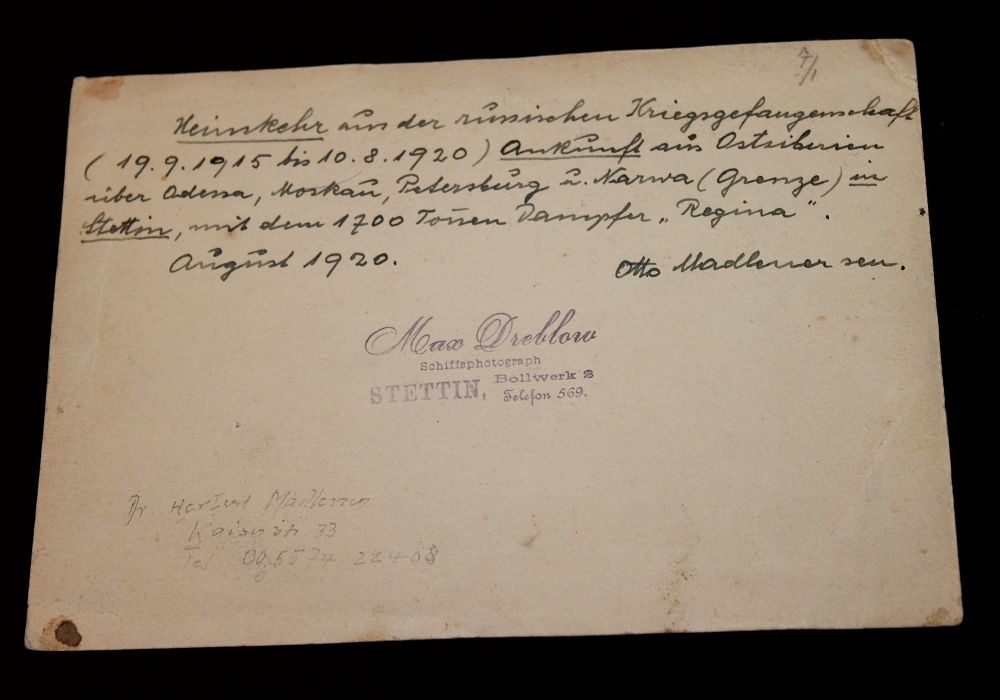 7/1
Heimkehr aus der russischen Kriegsgefangenschaft
( 19.9.1915 bis 10.8.1920 ) Ankunft aus Ostsibirien
über Odessa, Moskau, Petersburg u. Narwa ( Grenze ) in
Stettin, mit dem 1700 Tonnen Dampfer „Regina“.
August 1920. Otto Madlener sen.
Max Dreblow
Schiffsphotograph
STETTIN, Bollwerk 2
Telefon 569.
Dr Herbert Madlener
33
Tel 05574 22408